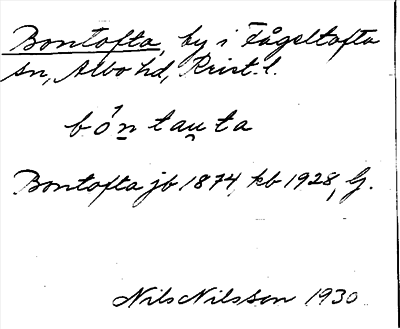 Bontofta, by i Fågeltofta
sn, Albo hd, Krist. l.
bóntau̯ta
Bontofta jb 1874, kb 1928, G.
Nils Nilsson 1930